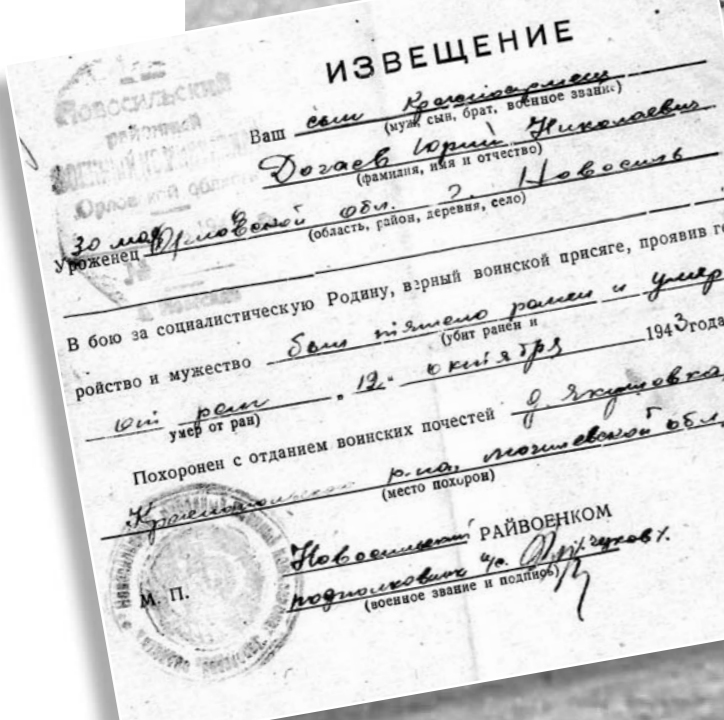 Новосильский
районный
ВОЕННЫЙ
Орловской области
30 мая
ИЗВЕЩЕНИЕ
Ваш сын Красноармеец
(муж, сын, брат, военное звание)
Догаев Юрий Николаевич
(фамилия, имя и отчество)
Уроженец Орловской обл. г. Новосиль
(область, район, деревня, село)
В бою за социалистическую Родину, верный воинской присяге, проявив ге
ройство и мужество был тяжело ранен и умер
(убит ранен и
от ран 12 октября 1943 года
умер от ран)
Похоронен с отданием воинских почестей д.
р-на, Могилевской обл.
(место похорон)
Новосильский РАЙВОЕНКОМ
М. П. подполковник и/с.
(военное звание и подпись)